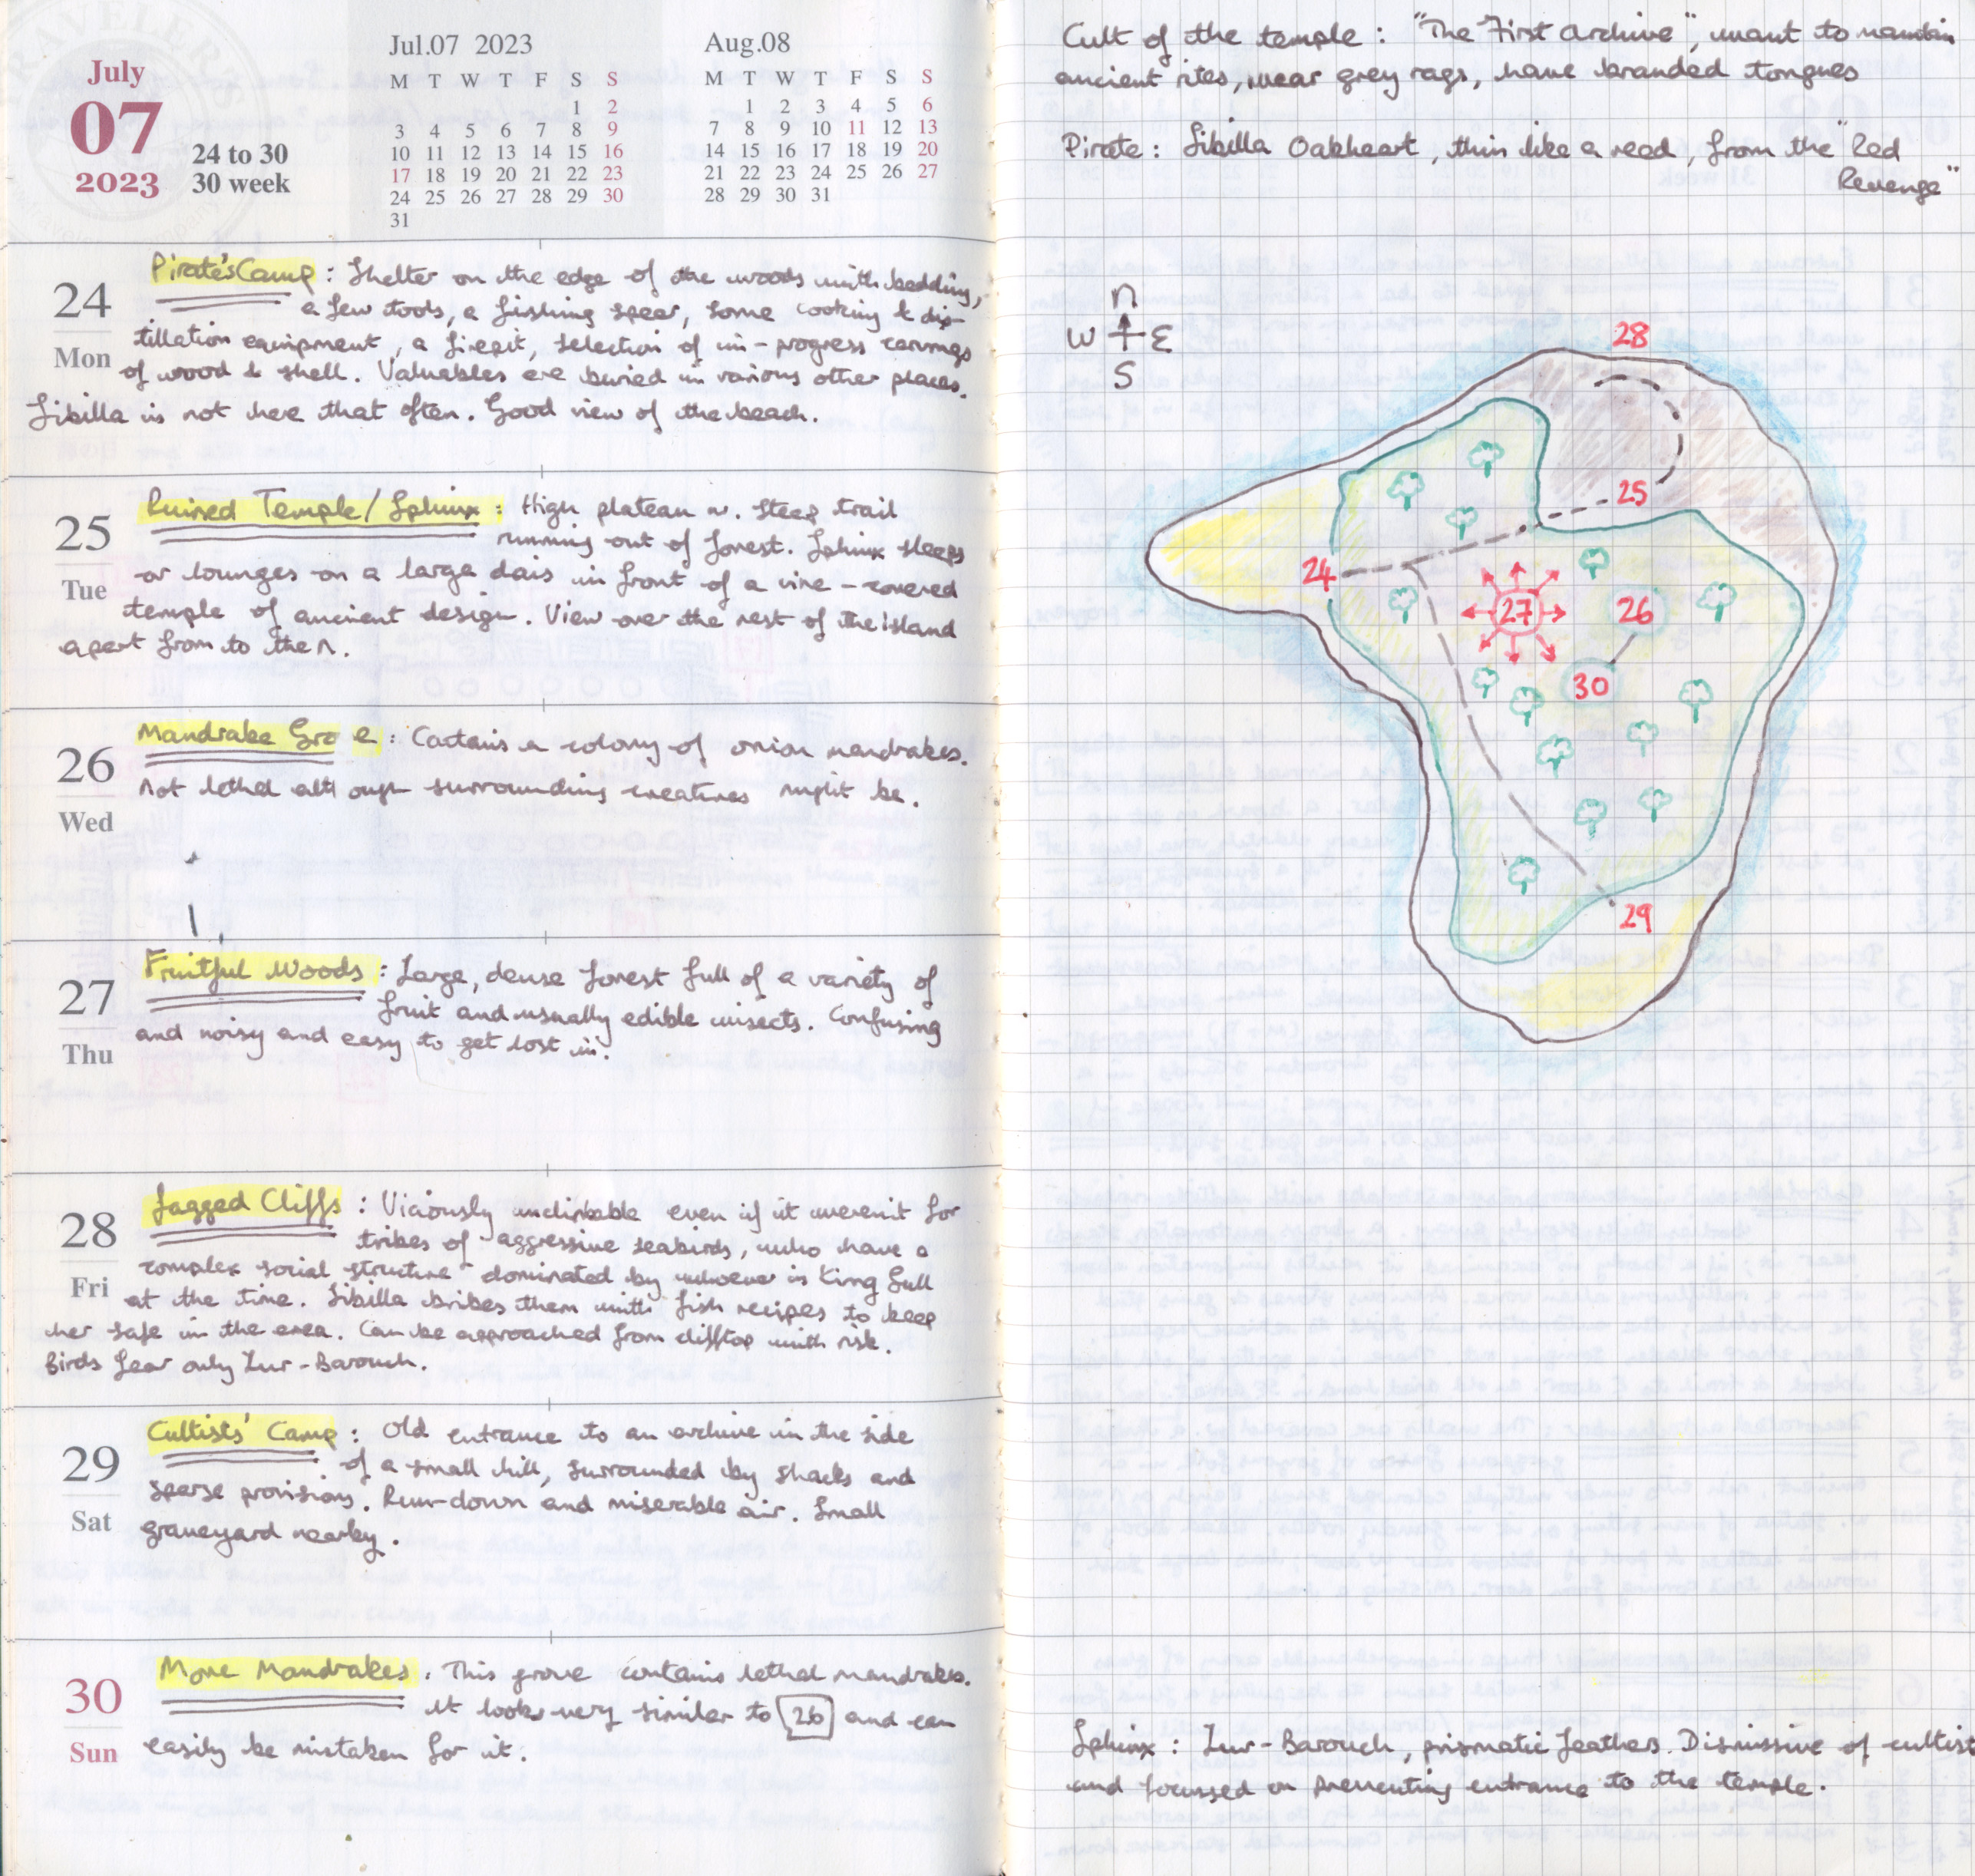 TRAVELER'S
July
07
2023
24 to 30
30 week
Jul.07 2023
M T W T F S S
1 2
3 4 5 6 7 8 9
10 11 12 13 14 15 16
17 18 19 20 21 22 23
24 25 26 27 28 29 30
31
Aug.08
M T W T F S S
1 2 3 4 5 6
7 8 9 10 11 12 13
14 15 16 17 18 19 20
21 22 23 24 25 26 27
28 29 30 31
24
Mon
Pirate's Camp : Shelter on the edge of the woods with bedding,
a few tools, a fishing spear, some cooking & dis-
tillation equipment, a firepit, selection of in-progress carvings
of wood & shell. Valuables are buried in various other places.
Sibilla is not here that often. Good view of the beach.
25
Tue
Ruined Temple/Sphinx : High plateau w. steep trail
running out of forest. Sphinx sleeps
or lounges on a large dais in front of a vine-covered
temple of ancient design. View over the rest of the island
apart from to the N.
26
Wed
Mandrake Gro e : Contains a colony of onion mandrakes.
Not lethal alth ough surrounding creatures might be.
27
Thu
Fruitful Woods : Large, dense forest full of a variety of
fruit and usually edible insects. Confusing
and noisy and easy to get lost in.
28
Fri
Jagged Cliffs : Viciously unclimbable even if it weren't for
tribes of aggressive seabirds, who have a
complex social structure dominated by whoever is King Gull
at the time. Sibilla bribes them with fish recipes to keep
her safe in the area. Can be approached from clifftop with risk.
Birds fear only Zur-Barouch.
29
Sat
Cultists' Camp : Old entrance to an archive in the side
of a small hill, surrounded by shacks and
sparse provisions. Run-down and miserable air. Small
graveyard nearby.
30
Sun
More Mandrakes : This grove contains lethal mandrakes.
It looks very similar to 26 and can
easily be mistaken for it.
Cult of the temple : "The First Archive", want to maintain
ancient rites, wear grey rags, have branded tongues
Pirate : Sibilla Oakheart, thin like a reed, from the "Red
Revenge"
N
W E
S
28
25
24
27
26
30
29
Sphinx : Zur-Barouch, prismatic feathers. Dismissive of cultist
and focussed on preventing entrance to the temple.